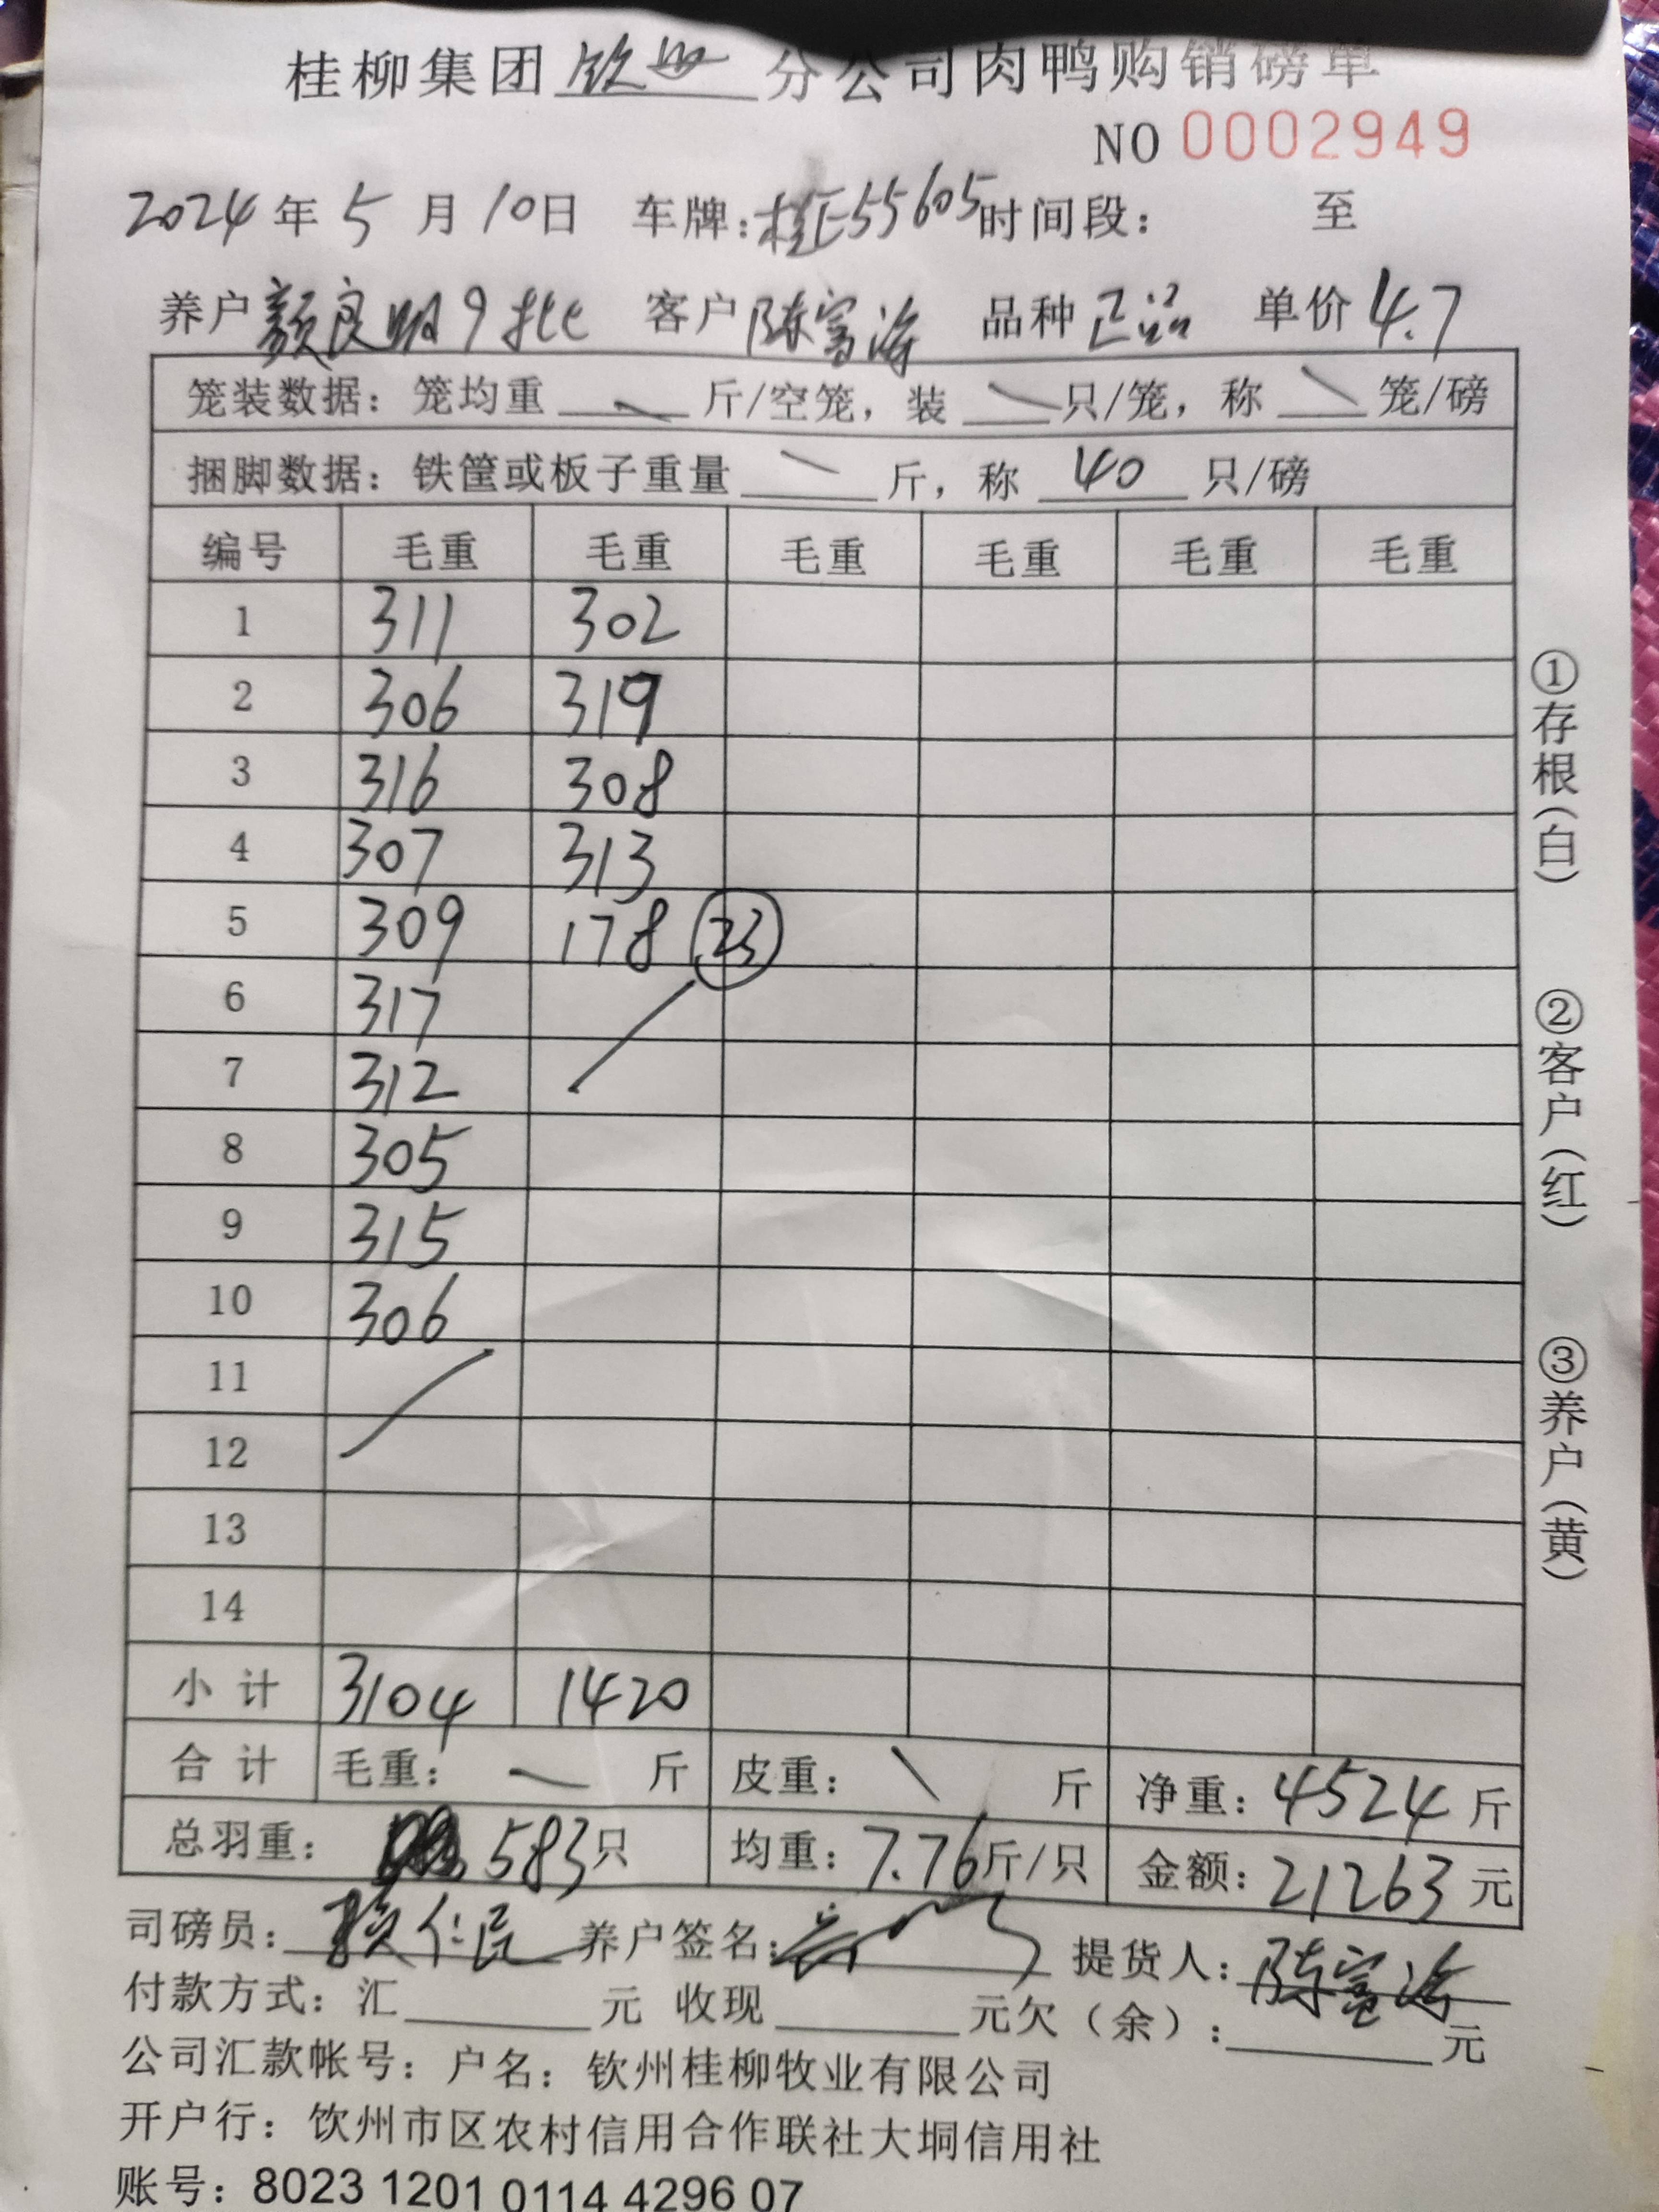 桂柳集团 钦州 分公司肉鸭购销磅单
NO 0002949
2024年5月10日 车牌:桂E55605 时间段: 至
养户 颜良明9批 客户 陈富 品种 正品 单价 4.7
笼装数据:笼均重 — 斤/空笼,装 — 只/笼,称 — 笼/磅
捆脚数据:铁筐或板子重量 — 斤,称 40 只/磅
编号 毛重 毛重 毛重 毛重 毛重 毛重
1 311 302
2 306 319
3 316 308
4 307 313
5 309 178 23
6 317
7 312
8 305
9 315
10 306
11
12
13
14
小计 3104 1420
合计 毛重: — 斤 皮重: — 斤 净重: 4524 斤
总羽重: 583只 均重: 7.76斤/只 金额: 21263 元
司磅员: 仁民 养户签名: 提货人: 陈富
付款方式:汇 元 收现 元欠(余): 元
公司汇款帐号:户名:钦州桂柳牧业有限公司
开户行:钦州市区农村信用合作联社大垌信用社
账号:8023 1201 0114 4296 07
①存根(白) ②客户(红) ③养户(黄)